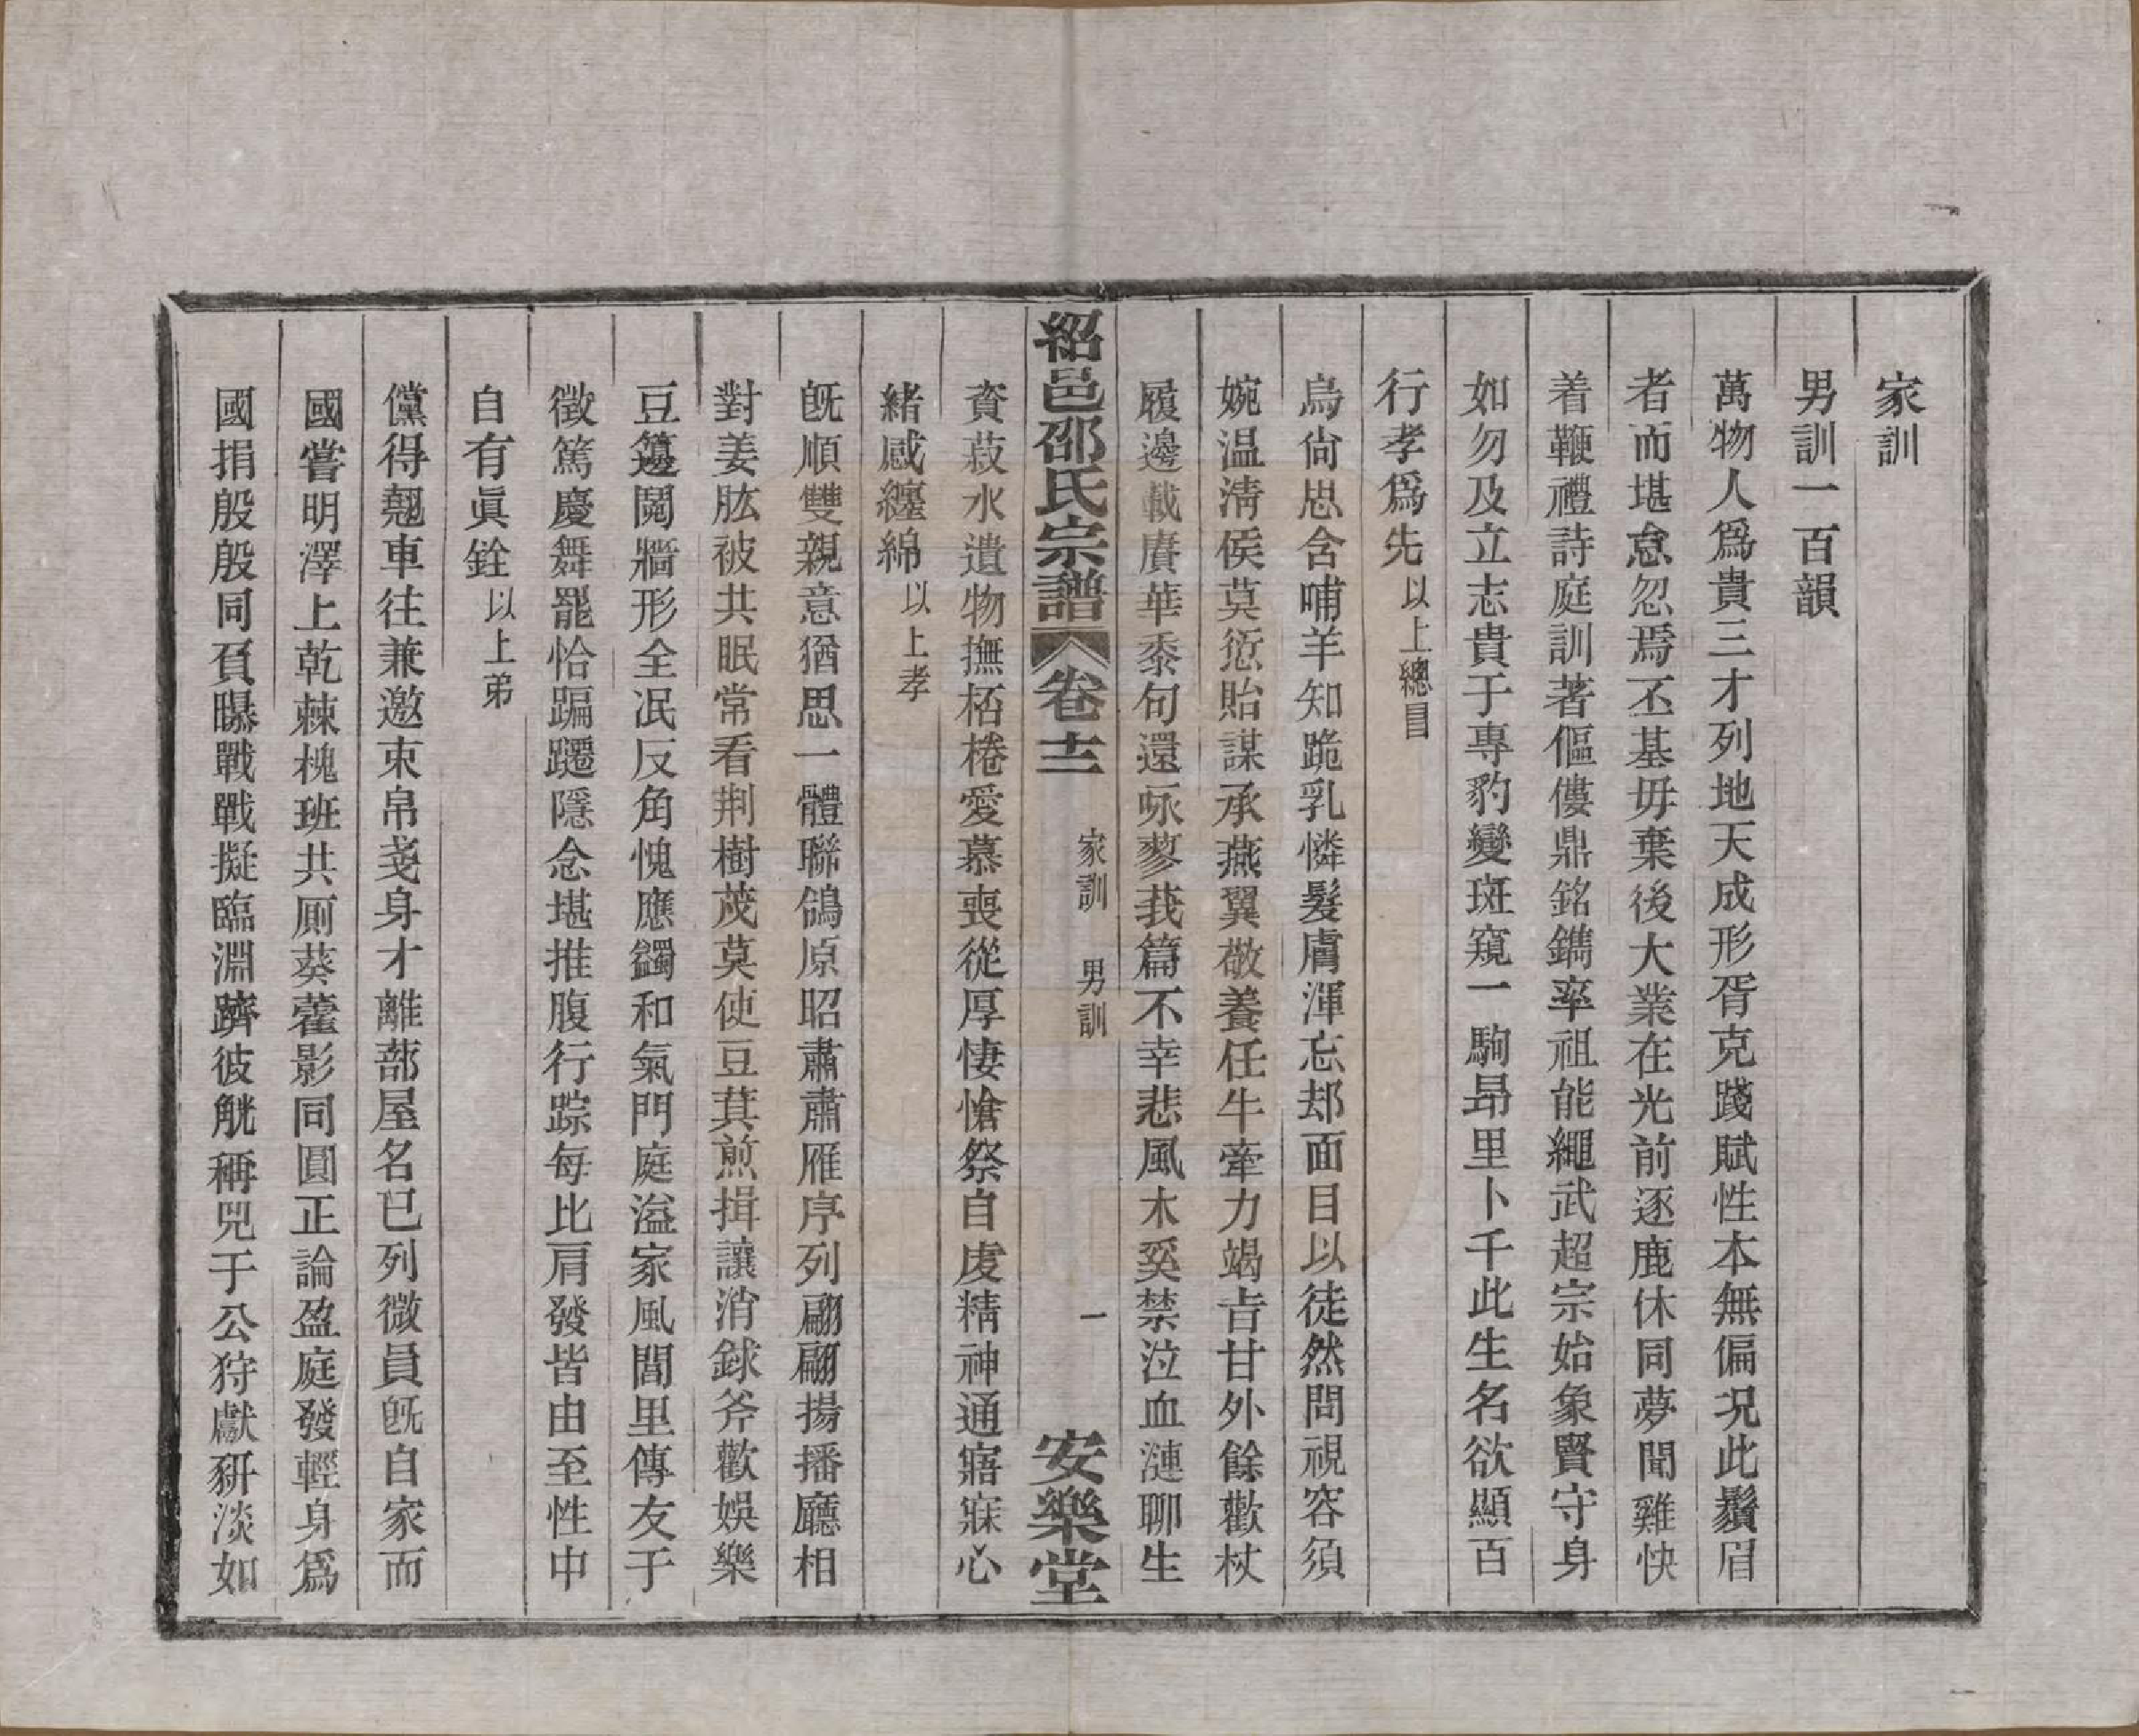 家訓
男訓一百韻
萬物人爲貴三才列地天成形胥克踐賦性本無偏况此鬚眉
者而堪怠忽焉丕基毋棄後大業在光前逐鹿休同夢聞雞快
着鞭禮詩庭訓著傴僂鼎銘鐫率祖能繩武超宗始象賢守身
如勿及立志貴于專豹變斑窺一駒昂里卜千此生名欲顯百
行孝爲先以上總目
烏尙思含哺羊知跪乳憐髮膚渾忘却面目以徒然問視容須
婉温凊侯莫愆貽謀承燕翼敬養任牛牽力竭㫖甘外餘歡杖
履邊載賡華黍句還咏蓼莪篇不幸悲風木奚禁泣血漣聊生
紹邑邵氏宗譜 卷十二 家訓 男訓 一 安樂堂
資菽水遺物撫桮棬愛慕喪從厚悽愴祭自虔精神通寤寐心
緒感纏綿以上孝
旣順雙親意猶思一體聯鴒原昭肅肅雁序列翩翩揚播廳相
對姜肱被共眠常看荆樹茂莫使豆萁煎揖讓消銶斧歡娛樂
豆籩鬩牆形全泯反角愧應蠲和氣門庭溢家風閭里傳友于
徵篤慶舞罷恰蹁躚隱念堪推腹行踪每比肩發皆由至性中
自有眞銓以上弟
儻得翹車往兼邀束帛戔身才離蔀屋名已列微員旣自家而
國嘗明澤上乾棘槐班共廁葵藿影同圓正論盈庭發輕身爲
國捐殷殷同負曝戰戰擬臨淵躋彼觥稱兕于公狩獻豜淡如